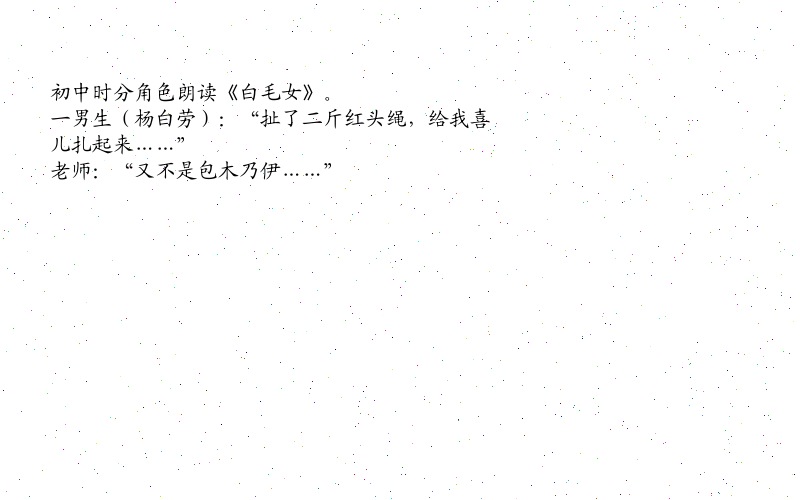 初中时分角色朗读《白毛女》。
一男生（杨白劳）：“扯了二斤红头绳，给我喜
儿扎起来……”
老师：“又不是包木乃伊……”